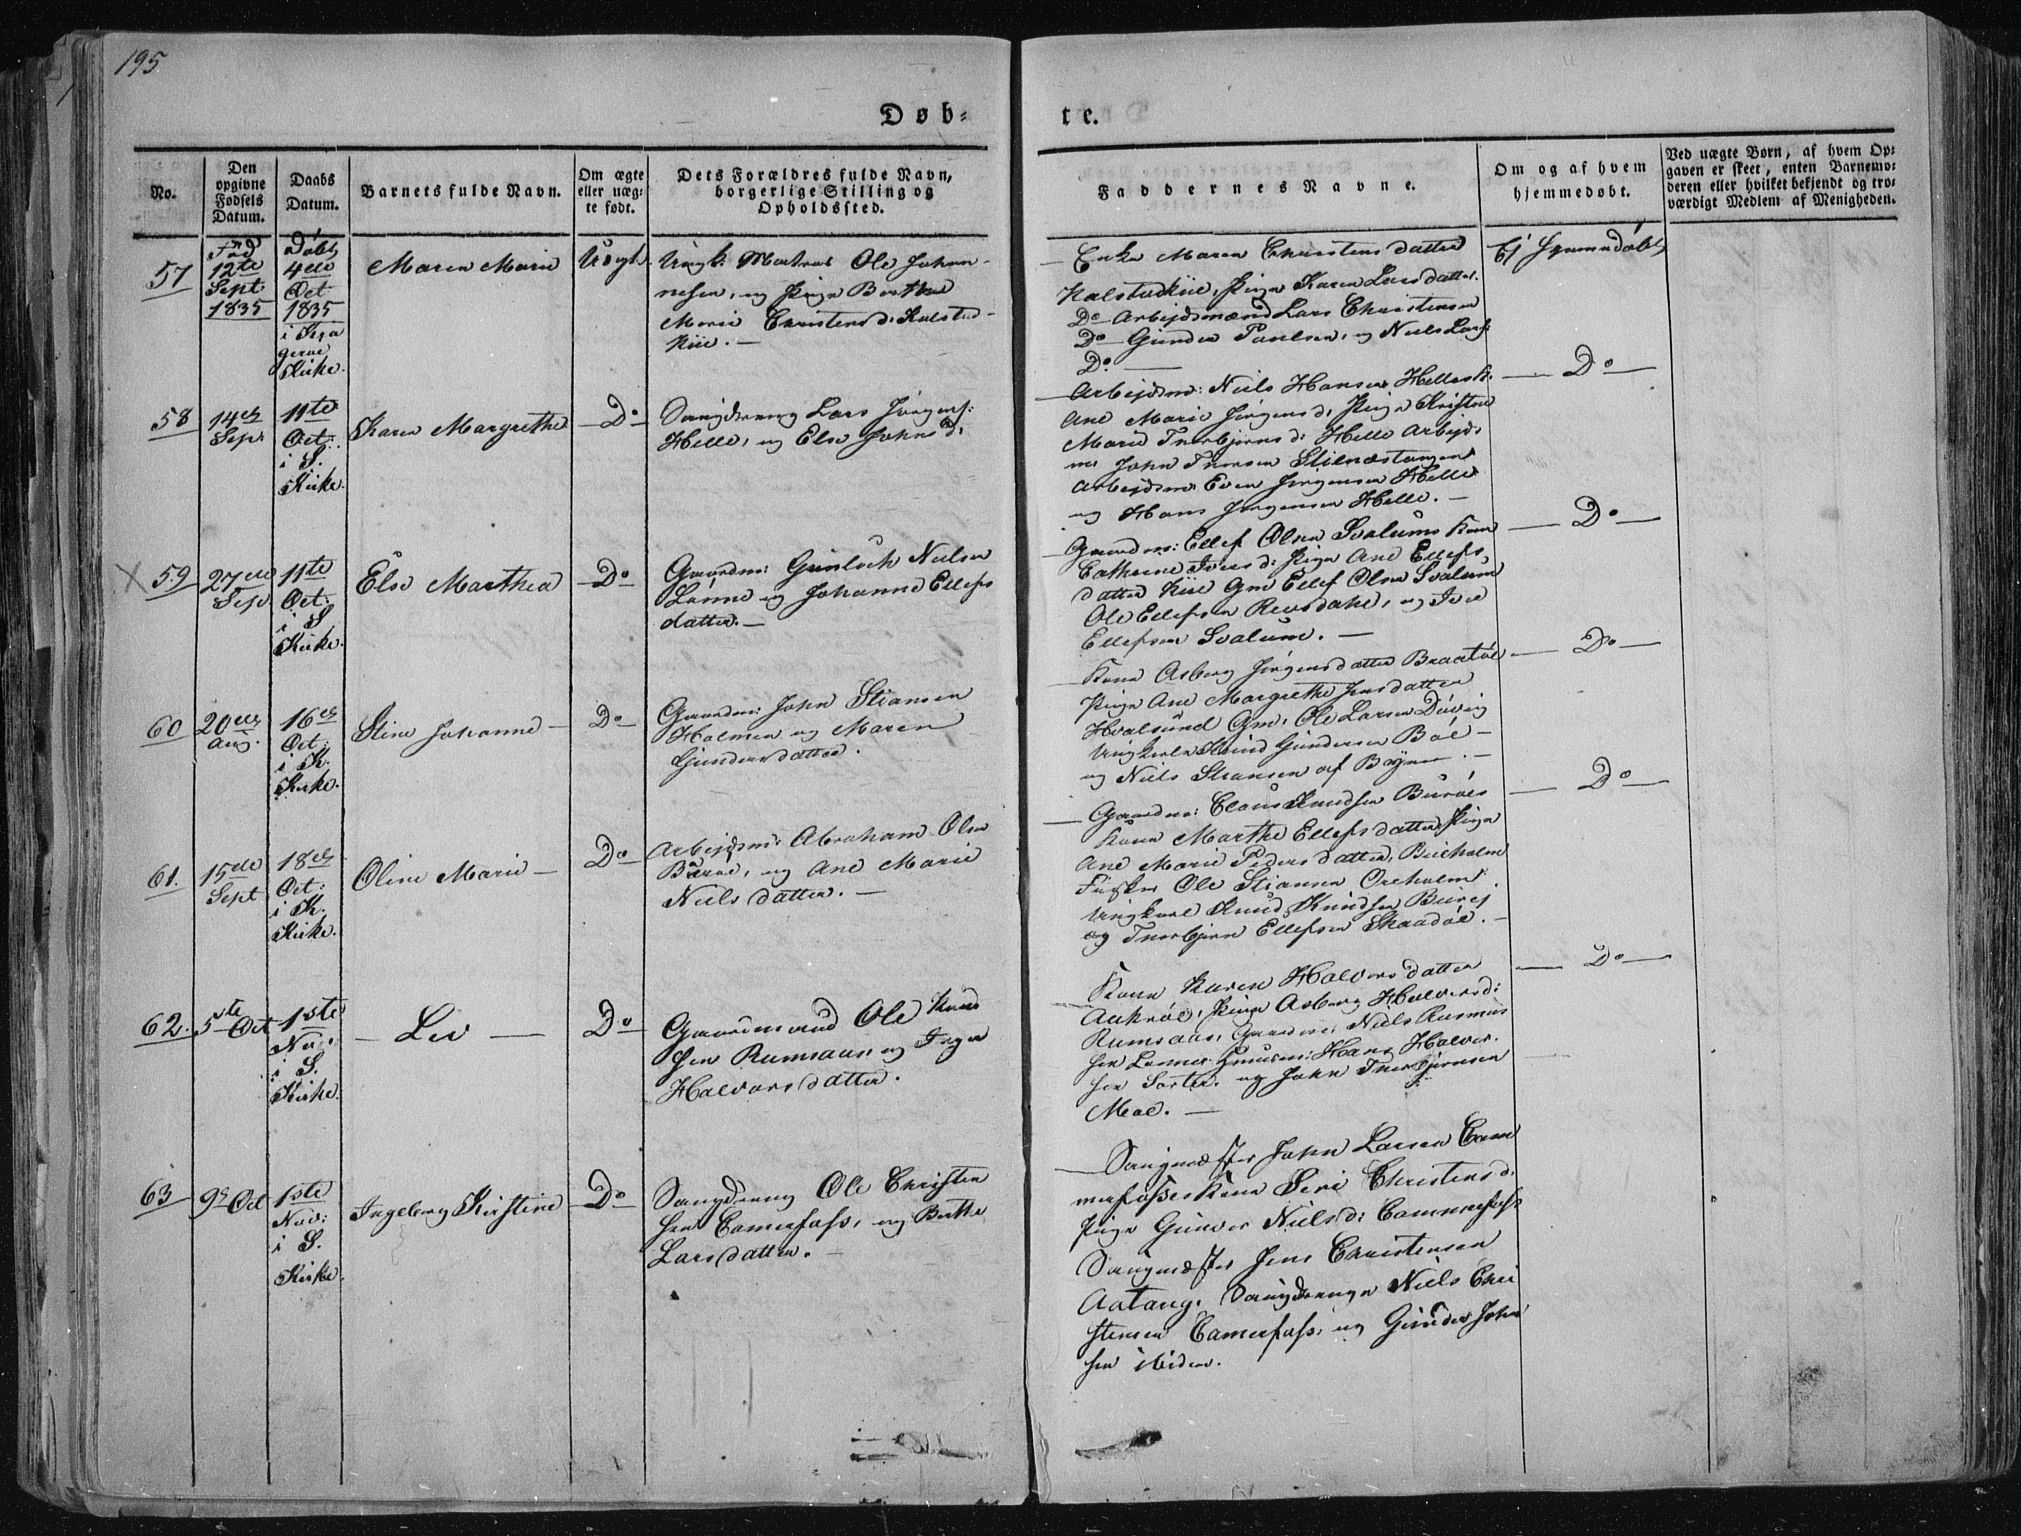 195
Døb-
te.
No.
Den opgivne Fødsels Datum.
Daabs Datum.
Barnets fulde Navn.
Om ægte eller uæg-te født.
Dets Forældres fulde Navn, borgerlige Stilling og Opholdssted.
Faddernes Navne.
Om og af hvem hjemmedøbt.
Ved uægte Børn, af hvem Op-gaven er skeet, enten Barnemo-deren eller hvilket bekjendt og tro-værdigt Medlem af Menigheden.
57
Fød
12te
Sept
1835
Døbt
4de
Oct
1835
i Kra
gerøe
Kirke.
Maren Marie
Uægt.
Ungk: Matros Ole Johan-
nesen, og Pige Berthe
Marie Christensd: Kalsted-
kiie.
Enke Maren Christensdatter
Kalstadkiie, Pige Karen Larsdatter
Do Arbejdsmænd Lars Christensen
Do Gunder Paulsen, og Niels Lars:
Do
Ej hjemmedøbt
58
14de
Sep:
11te
Oct:
i S.
Kirke.
Karen Margrethe
Do
Saugdreng Lars Jørgens:
Helle, og Else Johnsd:
Arbejdsm: Niels Hansen Hellesk.
Ane Marie Jørgensd: Pige Kristine
Marie Thorbjørnsd: Helle Arbejds
m: John Thorsen Stilnæstangen
Arbejdsm: Even Jørgensen Helle
og Hans Jørgensen Helle.
Do
59
27de
Sep
11te
Oct:
i S
Kirke.
Else Marthea
Do
Gaardm: Gunlech Nielsen
Lønne og Johanne Ellefs
datter.
Gaardm: Ellef Olsen Svalums Kone
Cathrine Iversd: Pige Ane Ellefs
datter Kiie Gm Ellef Olsen Svalum
Ole Ellefsen Reusdahl, og Iver
Ellefsen Svalum.
Do
60
20de
Aug.
16de
Oct:
i K.
Kirke.
Stine Johanne
Do
Gaardm: John Stiansen
Holmen og Maren
Gundersdatter.
Kone Asberg Jørgensdatter Braatøe
Pige Ane Margrethe Jensdatter
Hvalsund Gm: Ole Larsen Duvig
Ungkarle Knud Gundersen Bøe
og Niels Stiansen af Byen.
Do
61.
15de
Sept
18de
Oct:
i K.
Kirke.
Oline Marie
Do
Arbejdsm: Abraham Olsen
Burøe, og Ane Marie
Nielsdatter.
Gaardm: Claus Knudsen Burøes
Kone Marthe Ellefsdatter, Pige
Ane Marie Pedersdatter Bueholm
Fisker Ole Stiansen Oreholm
Ungkarl Knud Knudsen Burøe
og Thorbjørn Ellefsen Skaadøe.
Do
62.
5te Oct
1ste
Nov:
i S.
Kirke.
Liv
Do
Gaardmand Ole Knud
sen Rumsaas og Inger
Halvorsdatter.
Kone Karen Halvorsdatter
Aukrøe, Pige Asberg Halvorsd:
Rumsaas, Gaardm: Niels Rasmus
sen Lønne Huusm: Hans Halvor
sen Sorte, og John Thorbjørnsen
Moe.
Do
63
9de Oct
1ste
Nov:
i S.
Kirke.
Ingeborg Kirstine
Do
Saugdreng Ole Christen
sen Camerfoss, og Berthe
Larsdatter.
Saugmæster John Larsen Cam
merfosses Kone Siri Christensd:
Pige Gunver Nielsd: Cammerfoss
Saugmæster Jens Christensen
Aatang, Saugdrenge Niels Chri
stensen Camerfoss, og Gunder John
sen ibidem.